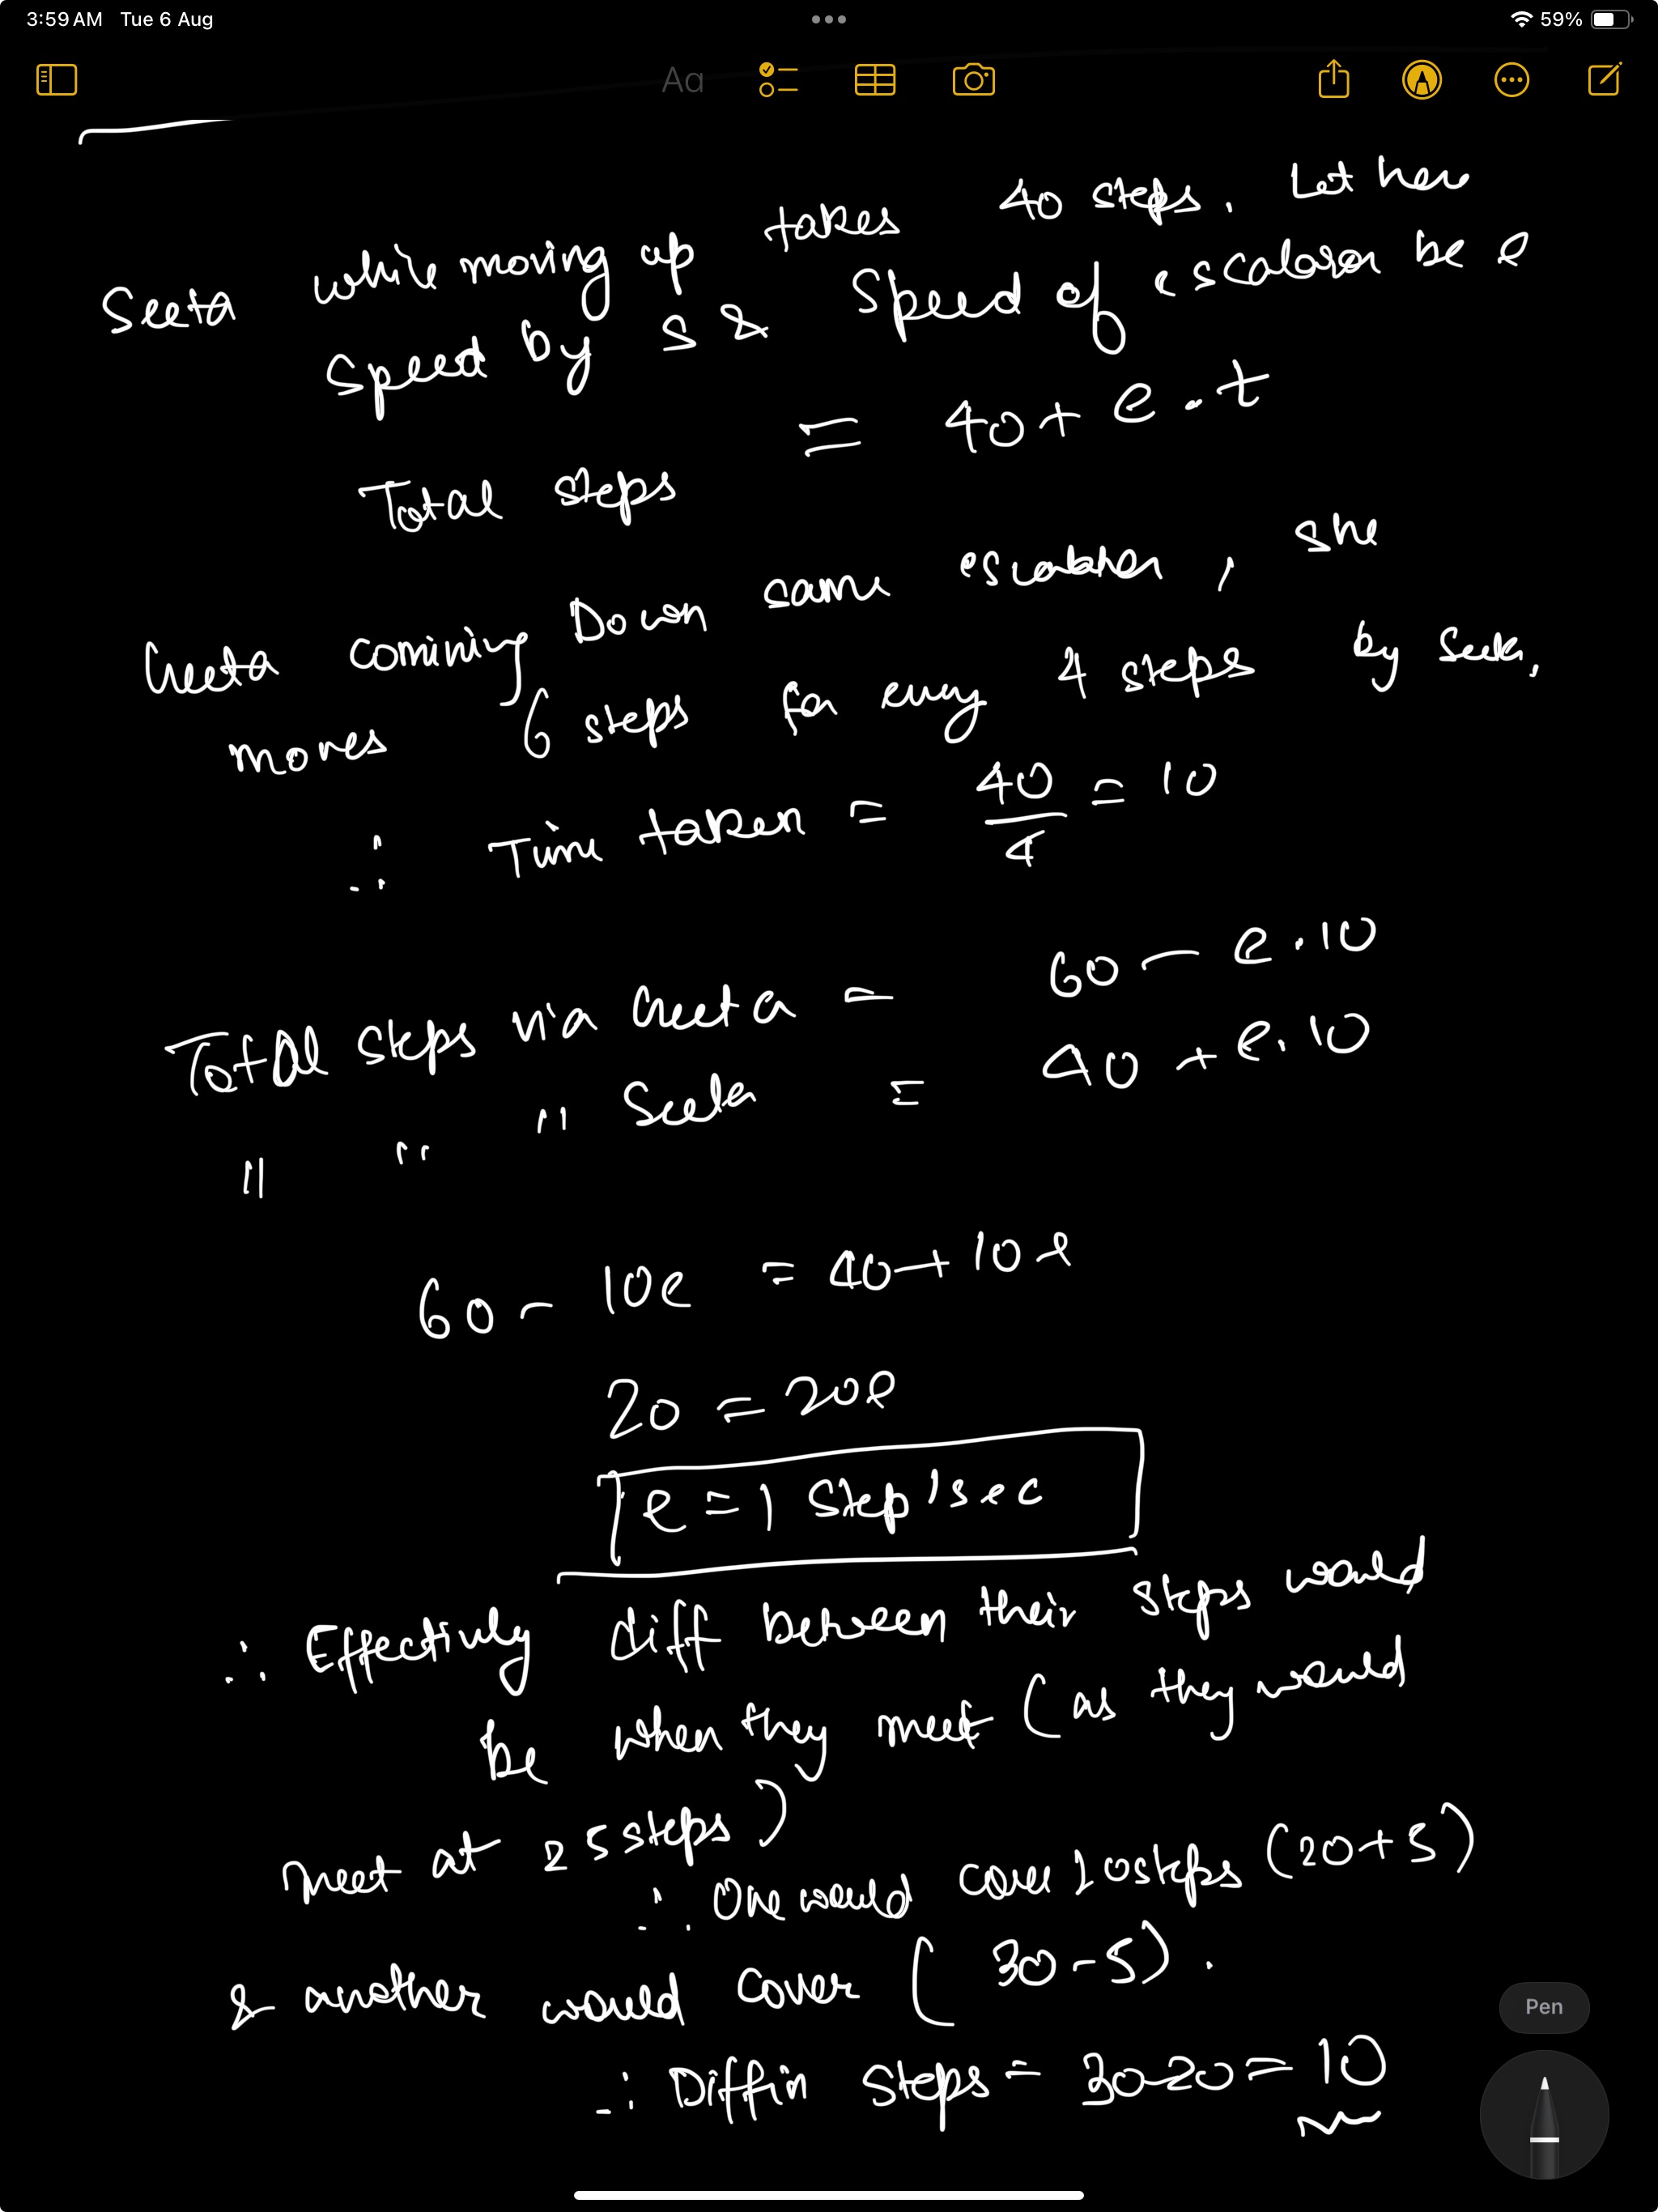 3:59 AM Tue 6 Aug
59%
Aa
Seeta while moving up takes 40 steps. Let her
speed by s & speed of escalator be e
Total steps = 40 + e.t
Geeta comining Down same escalator, she
moves 6 steps for every 4 steps by Seeta.
∴ Time taken = 40/4 = 10
Total steps via Geeta = 60 - e.10
" " " Seeta = 40 + e.10
60 - 10e = 40 + 10e
20 = 20e
e = 1 step/sec
∴ Effectively diff between their steps would
be when they meet (as they would
meet at 25 steps)
∴ One would cover 20 steps (20+5)
& another would cover (30-5).
∴ Diff in steps = 30-20 = 10
Pen